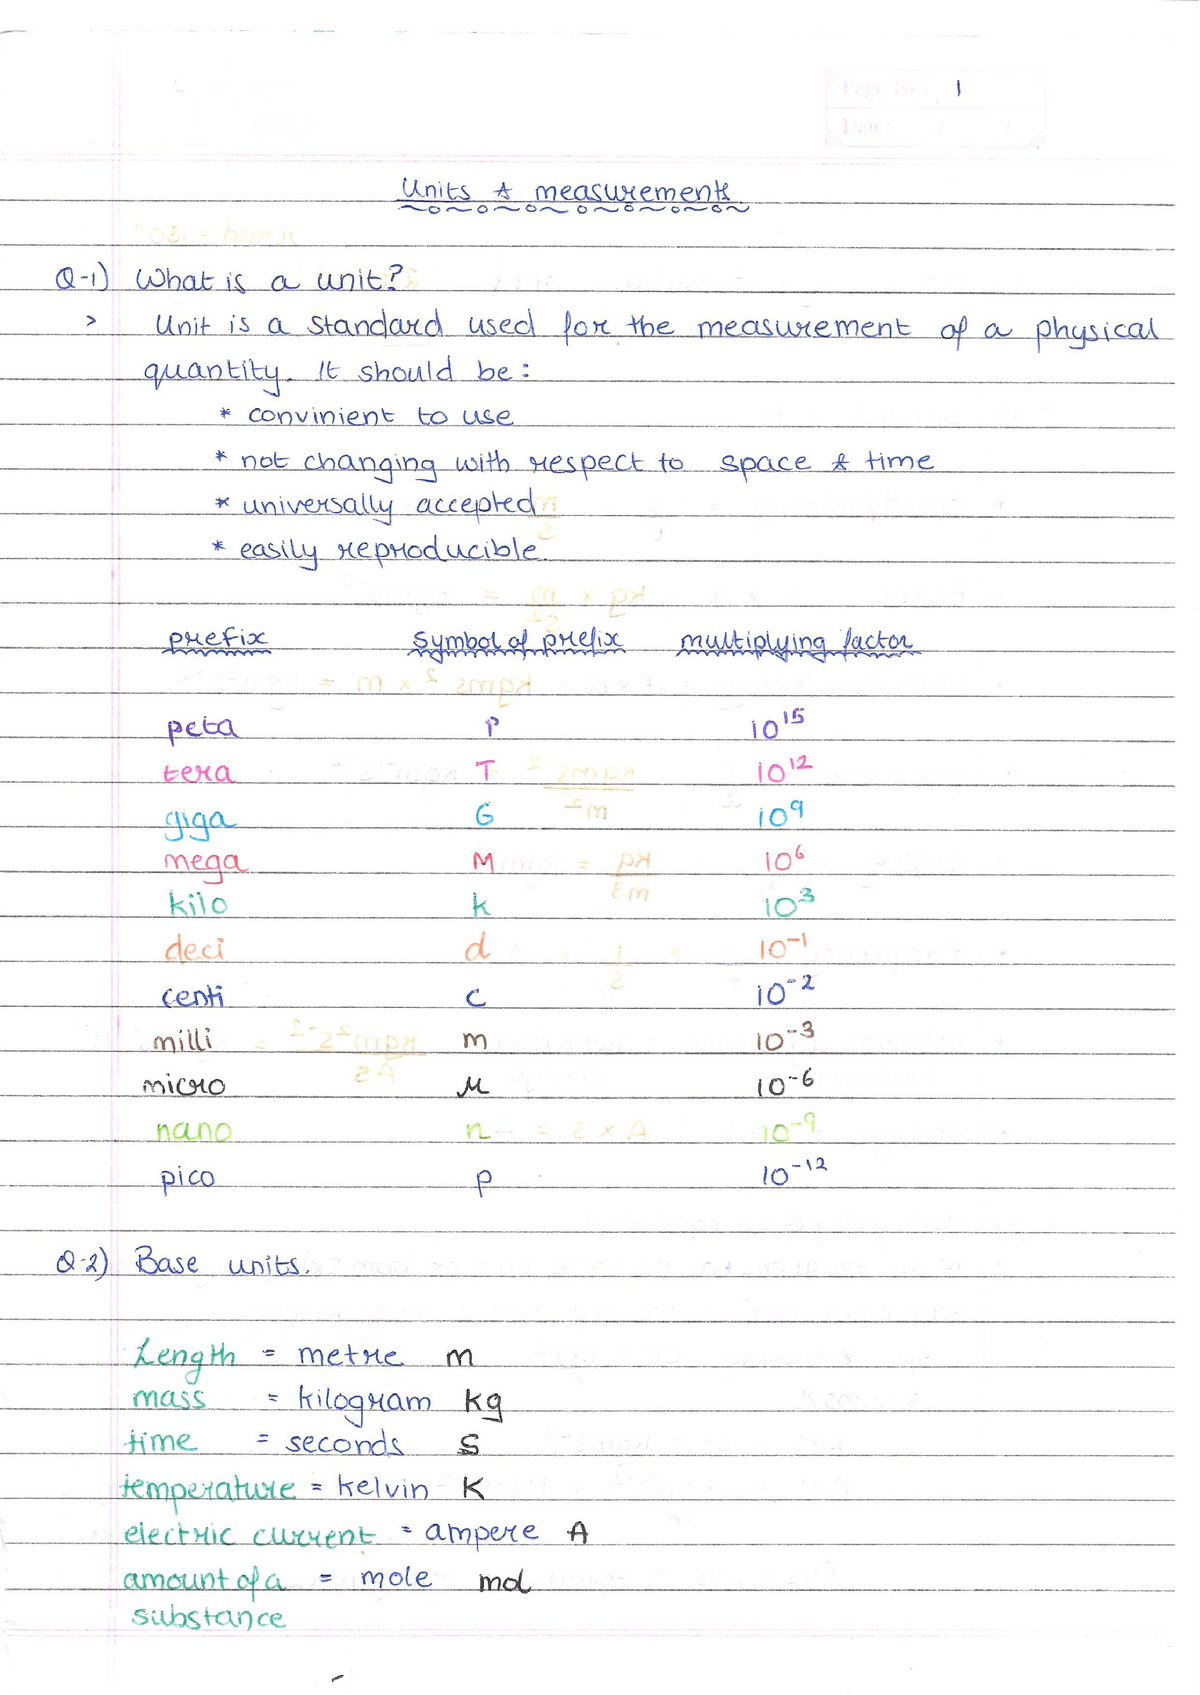 Page No. 1
Date: / /
Units & measurements
Q-1) What is a unit?
> Unit is a standard used for the measurement of a physical
quantity. It should be:
* convinient to use
* not changing with respect to space & time
* universally accepted
* easily reproducible.
prefix symbol of prefix multiplying factor
peta P 10¹⁵
tera T 10¹²
giga G 10⁹
mega M 10⁶
kilo k 10³
deci d 10⁻¹
centi c 10⁻²
milli m 10⁻³
micro μ 10⁻⁶
nano n 10⁻⁹
pico p 10⁻¹²
Q-2) Base units.
Length = metre m
mass = kilogram kg
time = seconds s
temperature = kelvin K
electric current = ampere A
amount of a = mole mol
substance